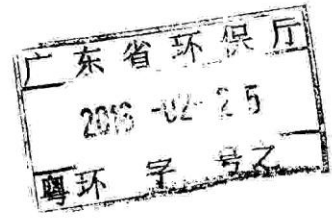 广东省环保厅
2016-02-25
粤环 字 号之